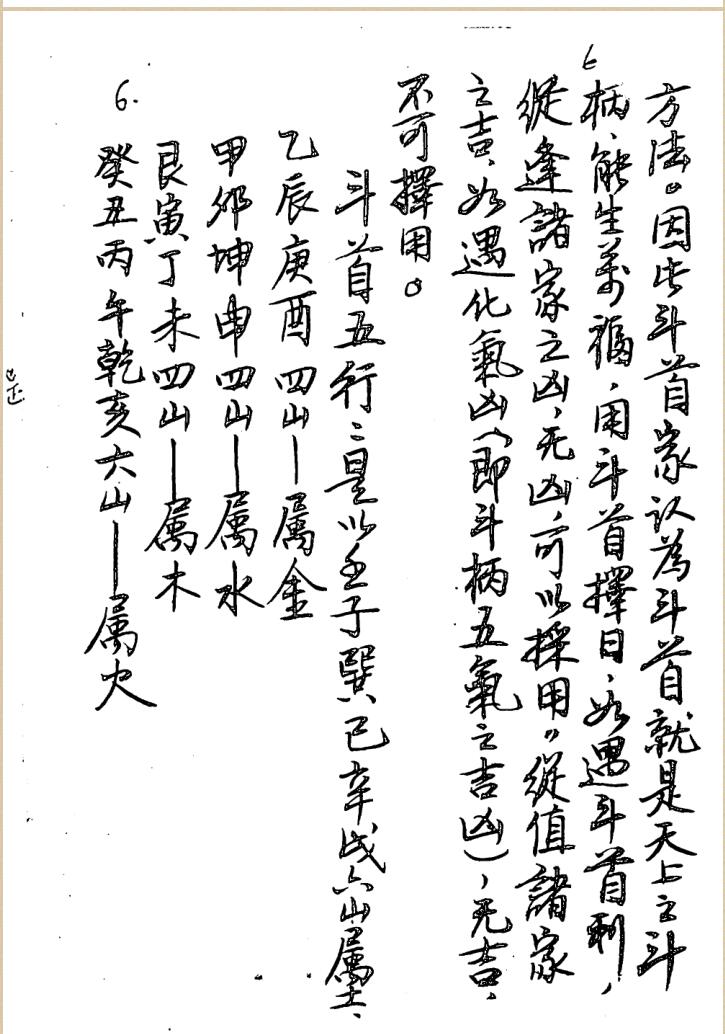 方法。因此斗首家认為斗首就是天上之斗
柄、能生萬福，用斗首擇日，如遇斗首利，
縦逢諸家之凶，无凶，可以採用〃縦值諸家
之吉，如遇化氣凶（即斗柄五氣之吉凶），无吉，
不可擇用。
斗首五行：是以壬子巽巳辛戌六山属土、
乙辰庚酉四山—属金
甲卯坤申四山—属水
艮寅丁未四山—属木
癸丑丙午乾亥六山—属火
6.